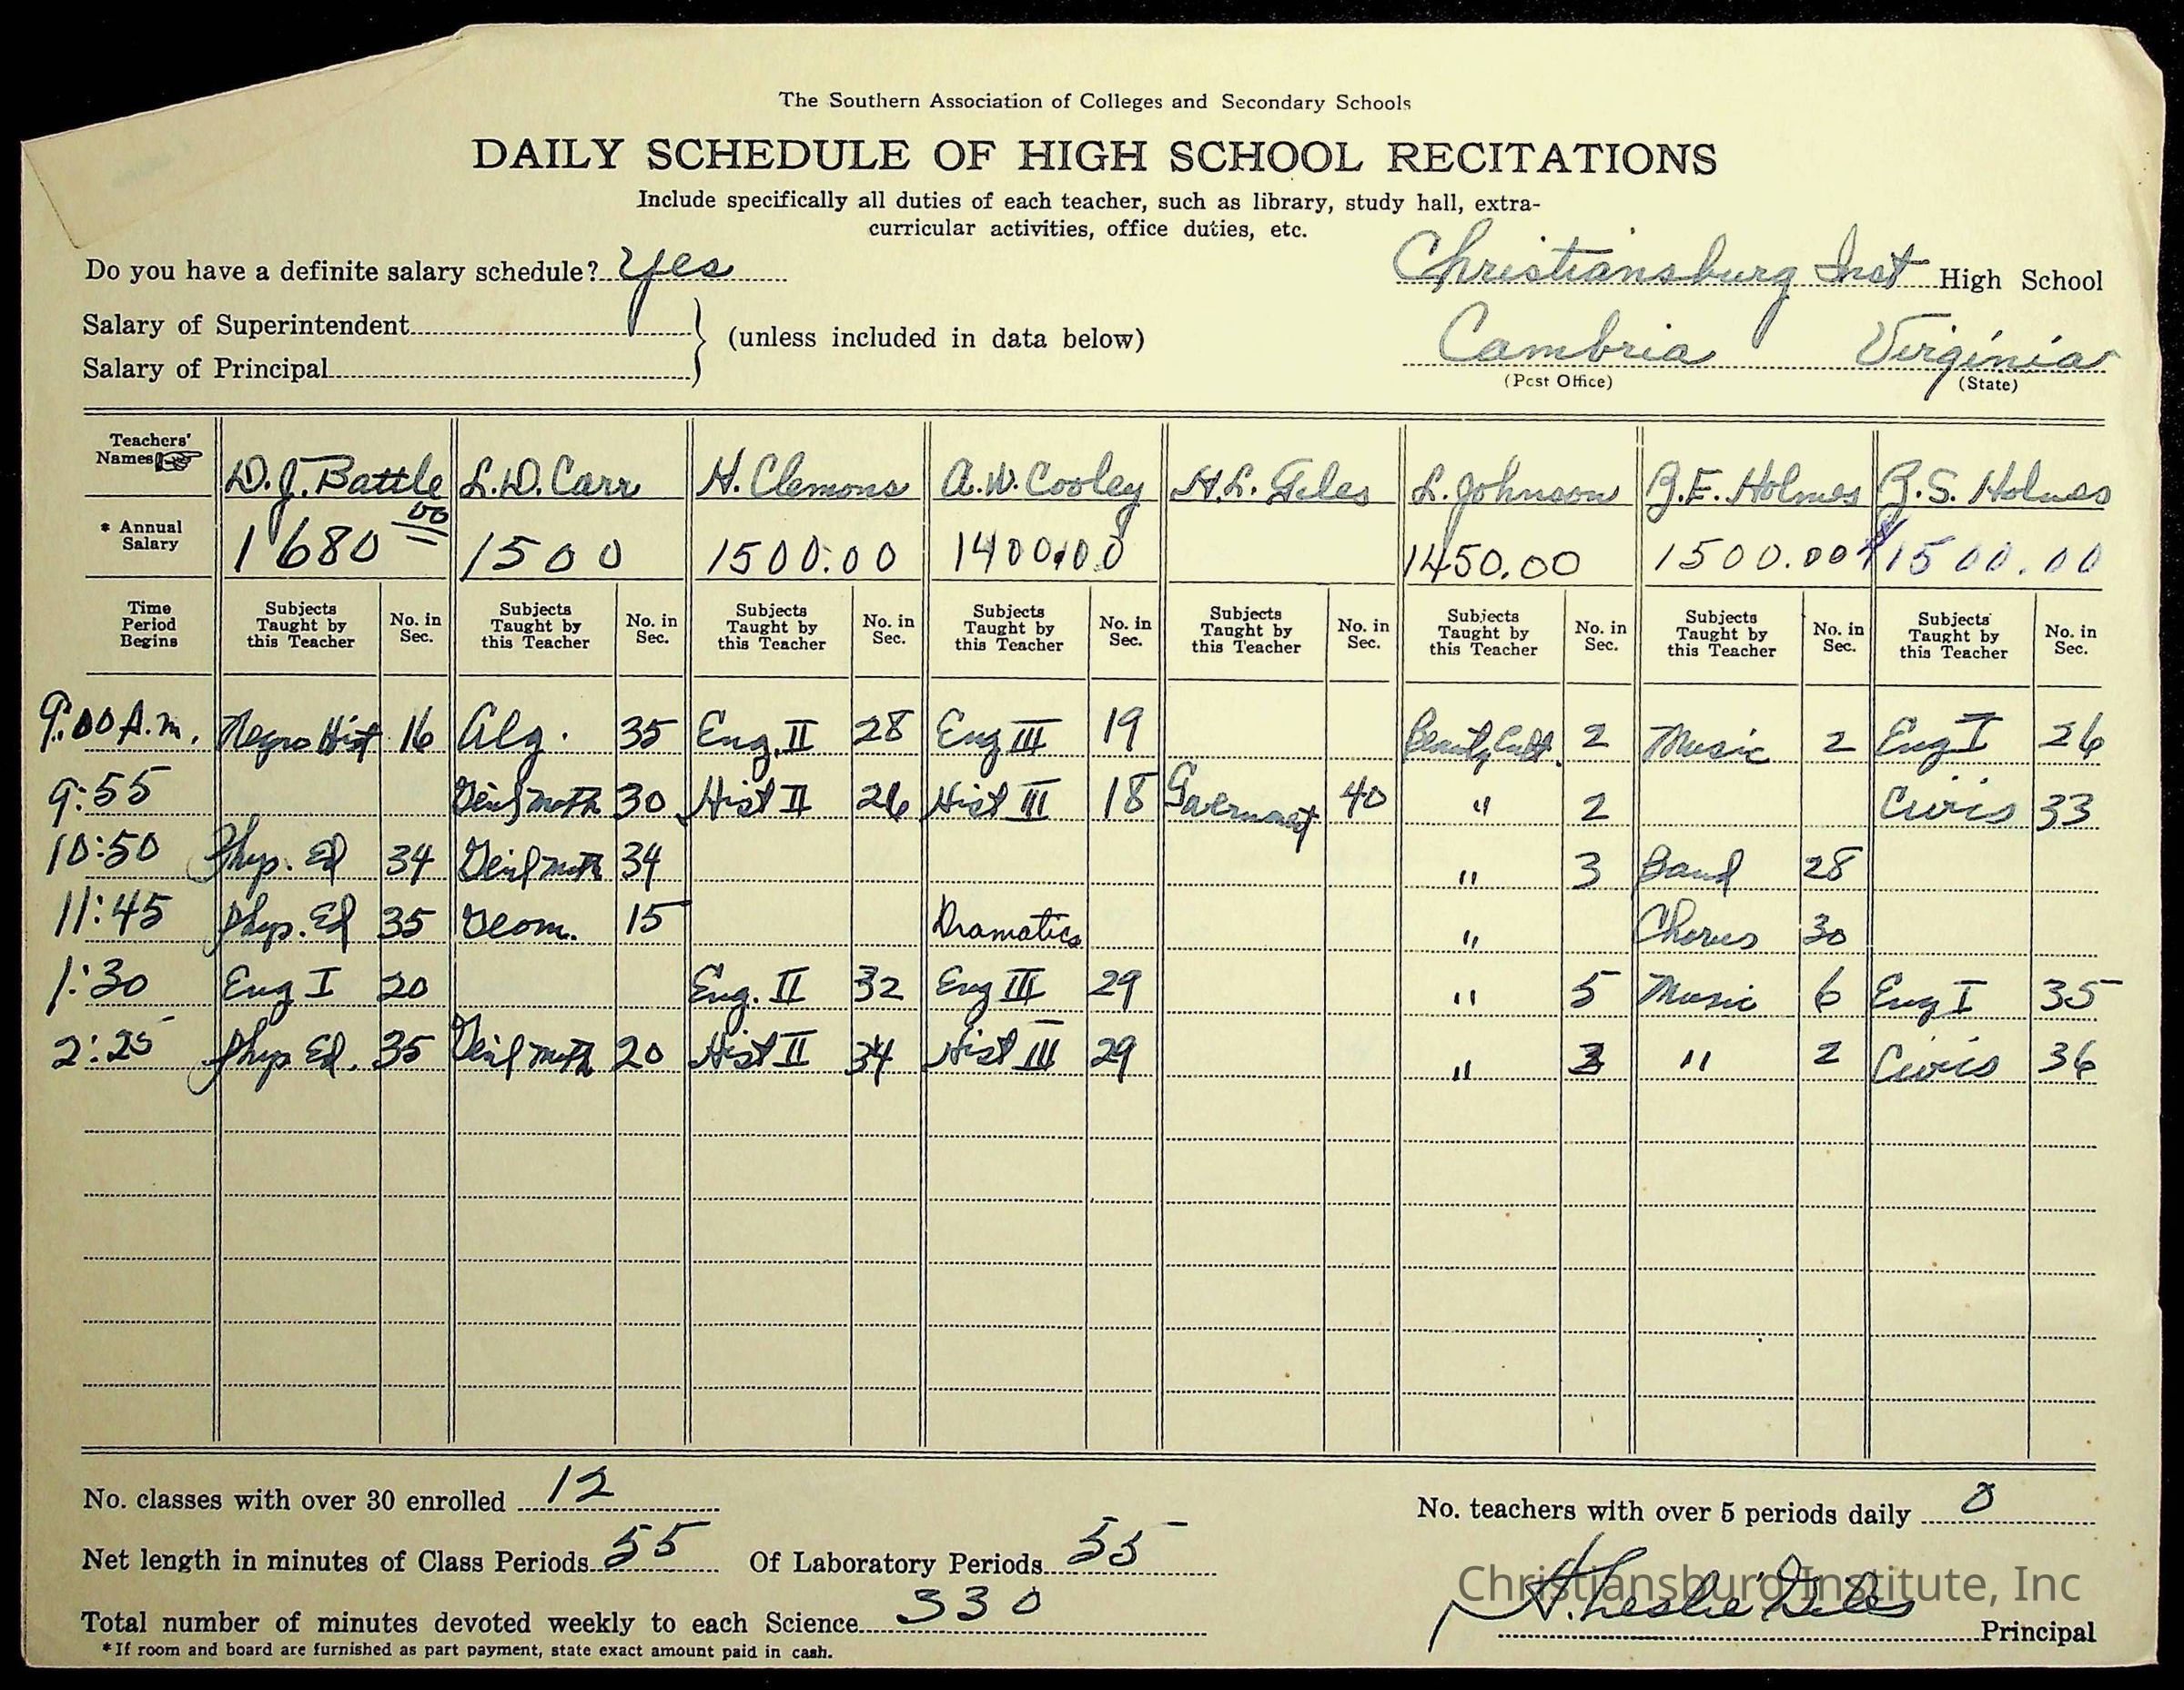 The Southern Association of Colleges and Secondary Schools
DAILY SCHEDULE OF HIGH SCHOOL RECITATIONS
Include specifically all duties of each teacher, such as library, study hall, extra-
curricular activities, office duties, etc.
Do you have a definite salary schedule? Yes
Christiansburg Inst High School
Salary of Superintendent
Salary of Principal
(unless included in data below)
Cambria Virginia
(Post Office) (State)
Teachers' Names D. J. Battle L. D. Carr H. Clemons A. W. Cooley H. L. Giles L. Johnson J. E. Holmes Z. S. Holmes
* Annual Salary 1680 00 1500 1500.00 1400.00 1450.00 1500.00 1500.00
Time Period Begins Subjects Taught by this Teacher No. in Sec. Subjects Taught by this Teacher No. in Sec. Subjects Taught by this Teacher No. in Sec. Subjects Taught by this Teacher No. in Sec. Subjects Taught by this Teacher No. in Sec. Subjects Taught by this Teacher No. in Sec. Subjects Taught by this Teacher No. in Sec. Subjects Taught by this Teacher No. in Sec.
9:00 A.m. Negro Hist 16 Alg. 35 Eng. II 28 Eng III 19 Beauty Cult. 2 Music 2 Eng I 26
9:55 Genl Math 30 Hist II 26 Hist III 18 Government 40 " 2 Civics 33
10:50 Phys. Ed 34 Genl Math 34 " 3 Band 28
11:45 Phys. Ed 35 Geom. 15 Dramatics " Chorus 30
1:30 Eng I 20 Eng. II 32 Eng III 29 " 5 Music 6 Eng I 35
2:25 Phys Ed. 35 Genl Math 20 Hist II 34 Hist III 29 " 3 " 2 Civics 36
No. classes with over 30 enrolled 12
No. teachers with over 5 periods daily 0
Net length in minutes of Class Periods 55 Of Laboratory Periods 55
Christiansburg Institute, Inc
Total number of minutes devoted weekly to each Science 330
A. Leslie Giles Principal
* If room and board are furnished as part payment, state exact amount paid in cash.